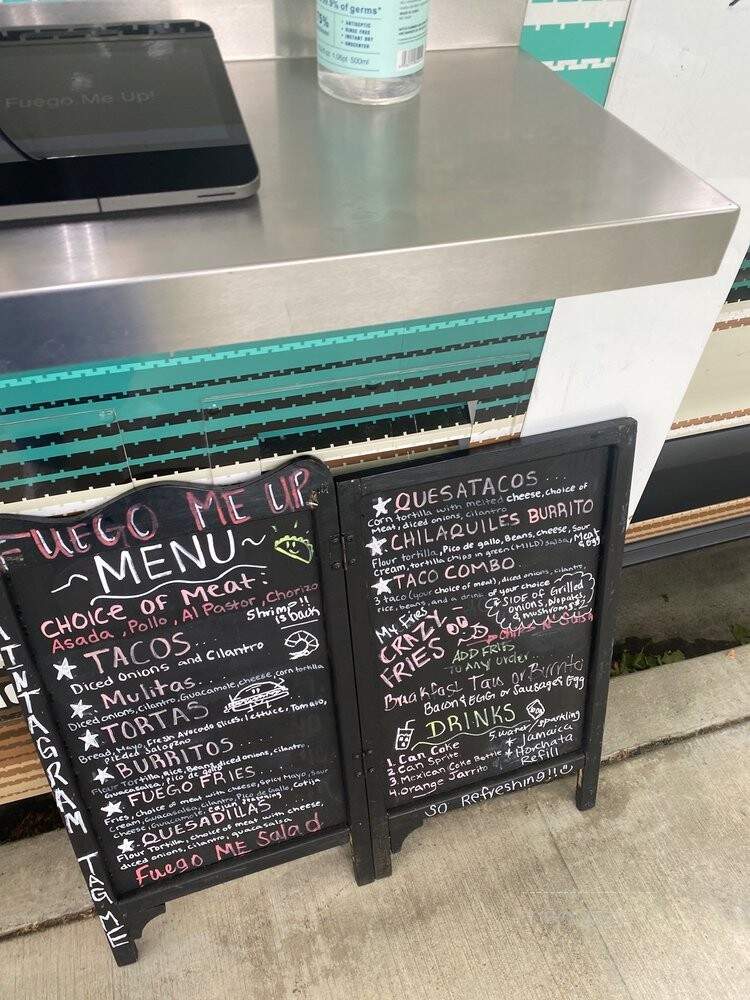 Fuego Me Up!
.9% of germs*
75%
• ANTISEPTIC
• RINSE FREE
• INSTANT DRY
500ml
FUEGO ME UP
~MENU~
CHOICE OF MEAT:
Asada, Pollo, Al Pastor, Chorizo
Shrimp!!
is Back
TACOS...
Diced onions and Cilantro
Mulitas...
Diced onions, Cilantro, Guacamole, cheese, corn tortilla
TORTAS
Bread, Mayo, Fresh Avocado slices, lettuce, Tomato,
BURRITOS...
Flour Tortilla, Rice, Beans, diced onions, cilantro,
Guacasalsa, Pico de gallo
FUEGO FRIES...
Fries, choice of meat with cheese, Spicy Mayo, Sour
Cream, Guacasalsa, cilantro, Pico de Gallo, Cotija
cheese, Guacamole, cajun seasoning
QUESADILLAS...
Flour Tortilla, choice of meat with cheese,
diced onions, cilantro, guacasalsa
Fuego ME Salad
TAG ME
QUESATACOS...
Corn tortilla with melted cheese, choice of
Meat, diced onions, cilantro
CHILAQUILES BURRITO
Flour tortilla, Pico de gallo, Beans, Cheese, Sour
cream, tortilla chips in green (MILD) salsa, Meat
& Egg
TACO COMBO...
3 taco (your choice of meat), diced onions, cilantro,
rice, beans, and a drink of your choice
* SIDE of Grilled
onions, Nopales,
& mushrooms
My Fries
CRAZY
FRIES
ADD FRIES
To Any order...
Breakfast Taco or Burrito
Bacon & EGG or Sausage & Egg
DRINKS
1. Can Coke
2. Can Sprite
3. Mexican Coke Bottle
4. Orange Jarrito
5. water/sparkling
* Jamaica
* Horchata
Refill
SO Refreshing!!